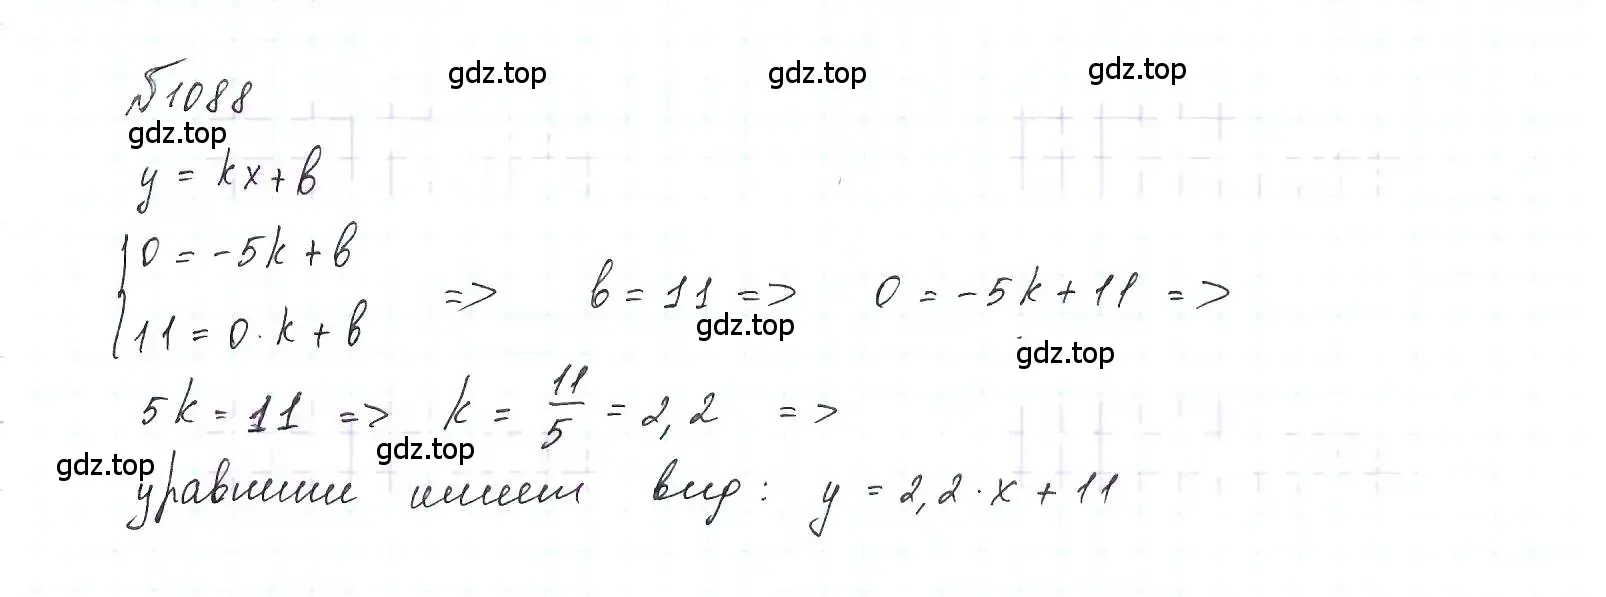 №1088
gdz.top gdz.top gdz.top
gdz.top
y = kx + b
0 = -5k + b
11 = 0 · k + b
=> b = 11 => 0 = -5k + 11 =>
gdz.top
gdz.top
5k = 11 => k = 11/5 = 2,2 =>
gdz.top
gdz.top
уравнение имеет вид: y = 2,2 · x + 11